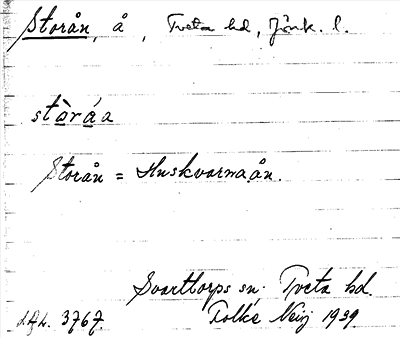 Storån, å, Tveta hd, Jönk. l.
stòráa
Storån = Huskvarnaån.
Svarttorps sn. Tveta hd.
3767. Folke 1939.